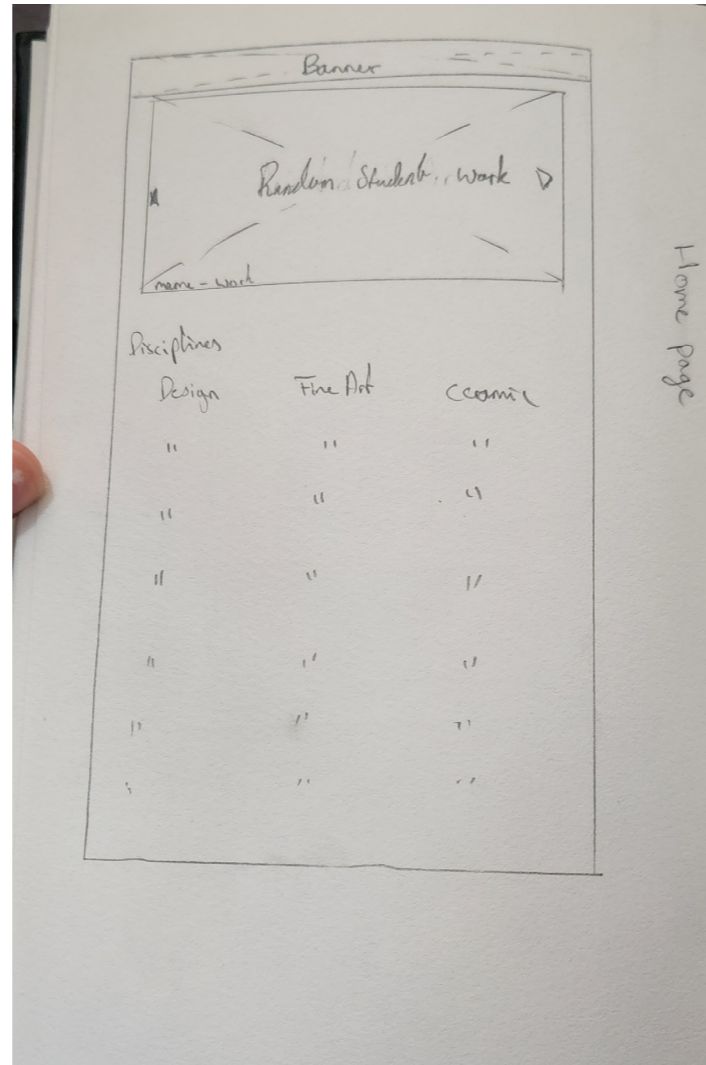 Banner
Random Student work
name - work
Disciplines
Design Fine Art Ceramic
" " "
" " "
" " "
" " "
" " "
" " "
Home page